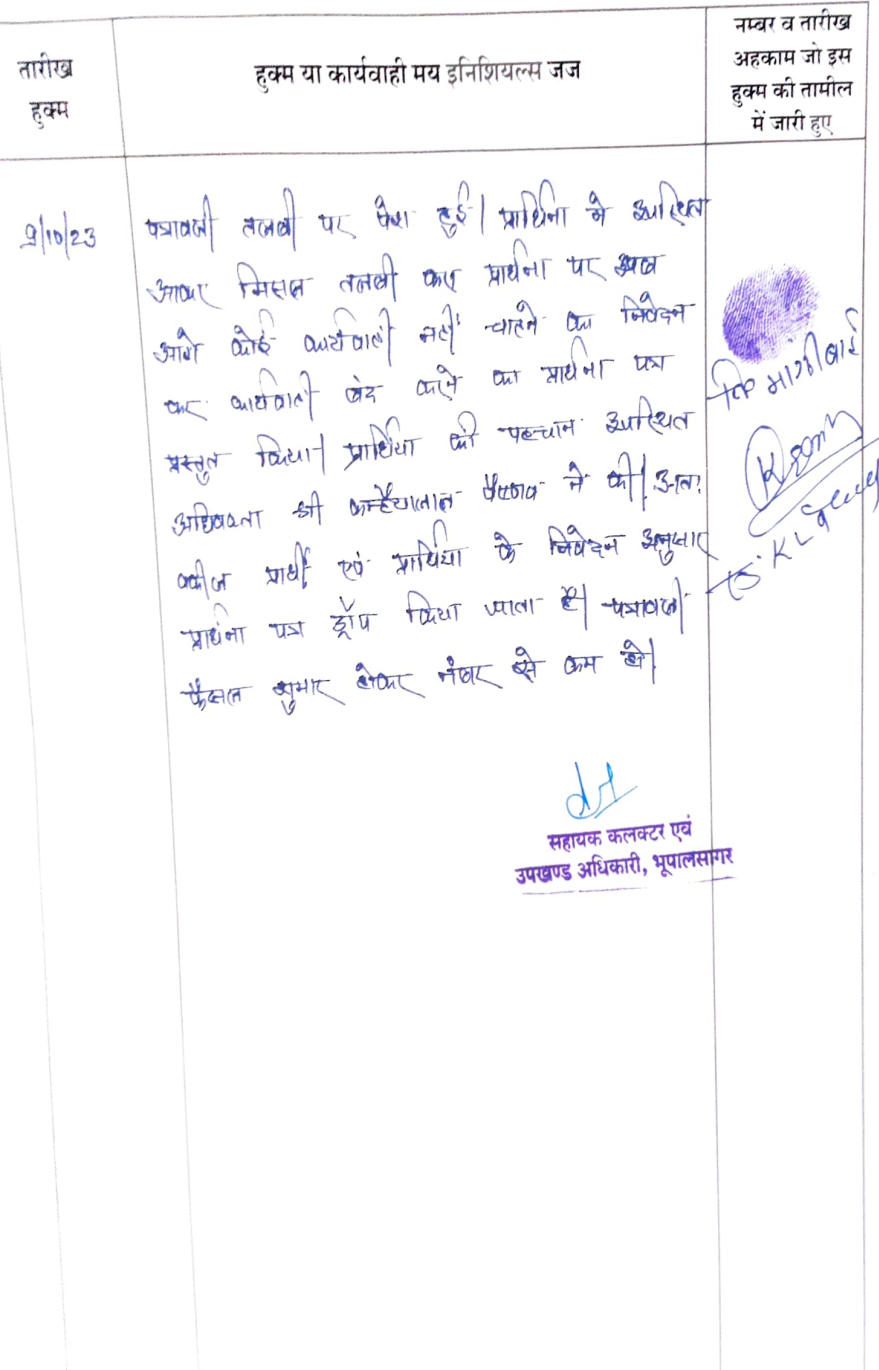 तारीख
हुक्म
हुक्म या कार्यवाही मय इनिशियल्स जज
नम्बर व तारीख
अहकाम जो इस
हुक्म की तामील
में जारी हुए
9/10/23
पत्रावली तलबी पर पेश हुई। प्रार्थिना ने उपस्थित
आकर मिसल तलबी करा प्रार्थना पर अब
आगे कोई कार्यवाही नहीं चाहने का निवेदन
कर कार्यवाही बंद करने का प्रार्थना पत्र
प्रस्तुत किया। प्रार्थिया की पहचान उपस्थित
अधिवक्ता श्री कन्हैयालाल वैष्णव ने की। अतः
वकील प्रार्थी एवं प्रार्थिया के निवेदन अनुसार
प्रार्थना पत्र ड्रॉप किया जाता है। पत्रावली
फैसल शुमार होकर नंबर से कम हो।
मांगी बाई
सहायक कलक्टर एवं
उपखण्ड अधिकारी, भूपालसागर